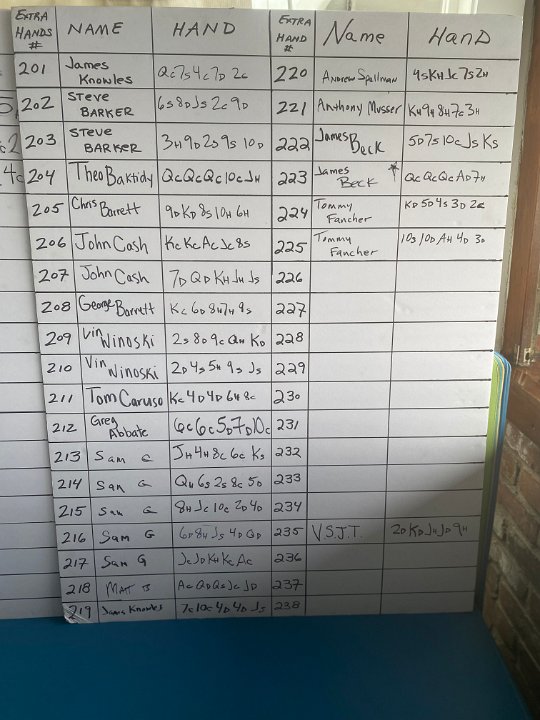 EXTRA HANDS # NAME HAND EXTRA HAND # Name HAND
201 James Knowles Qc7s4c7D 2c 220 Andrew Spellman 4sKHJc7s2H
202 STEVE BARKER 6s8DJs2c9D 221 Anthony Musser KH9H8H7c3H
203 STEVE BARKER 3H9D2s9s 10D 222 James Beck 5D7s10cJsKs
204 Theo Baktidy QcQcQc10cJH 223 James Beck * QcQcQcAD7H
205 Chris Barrett 9DKD8s10H6H 224 Tommy Fancher KD5D4s3D2c
206 John Cash KcKcAcJc8s 225 Tommy Fancher 10s10DAH4D3D
207 John Cash 7DQDKHJHJs 226
208 George Barrett Kc6D8H7H9s 227
209 Vin Winoski 2s8D9cQHKD 228
210 Vin Winoski 2D4s5H9sJs 229
211 Tom Caruso Kc4D4D6H8c 230
212 Greg Abbate 6c5D7D10c 231
213 Sam JH4H8c6cKs 232
214 QH6s2s8c5D 233
215 8HJc10c2D4D 234
216 Sam G 6D8HJs4DQD 235 V.S.J.T. 2DKDJHJD9H
217 Sam G JcJDKHKcAc 236
218 MATT B AcQDQsJcJD 237
219 James Knowles 7s10c4D4DJs 238